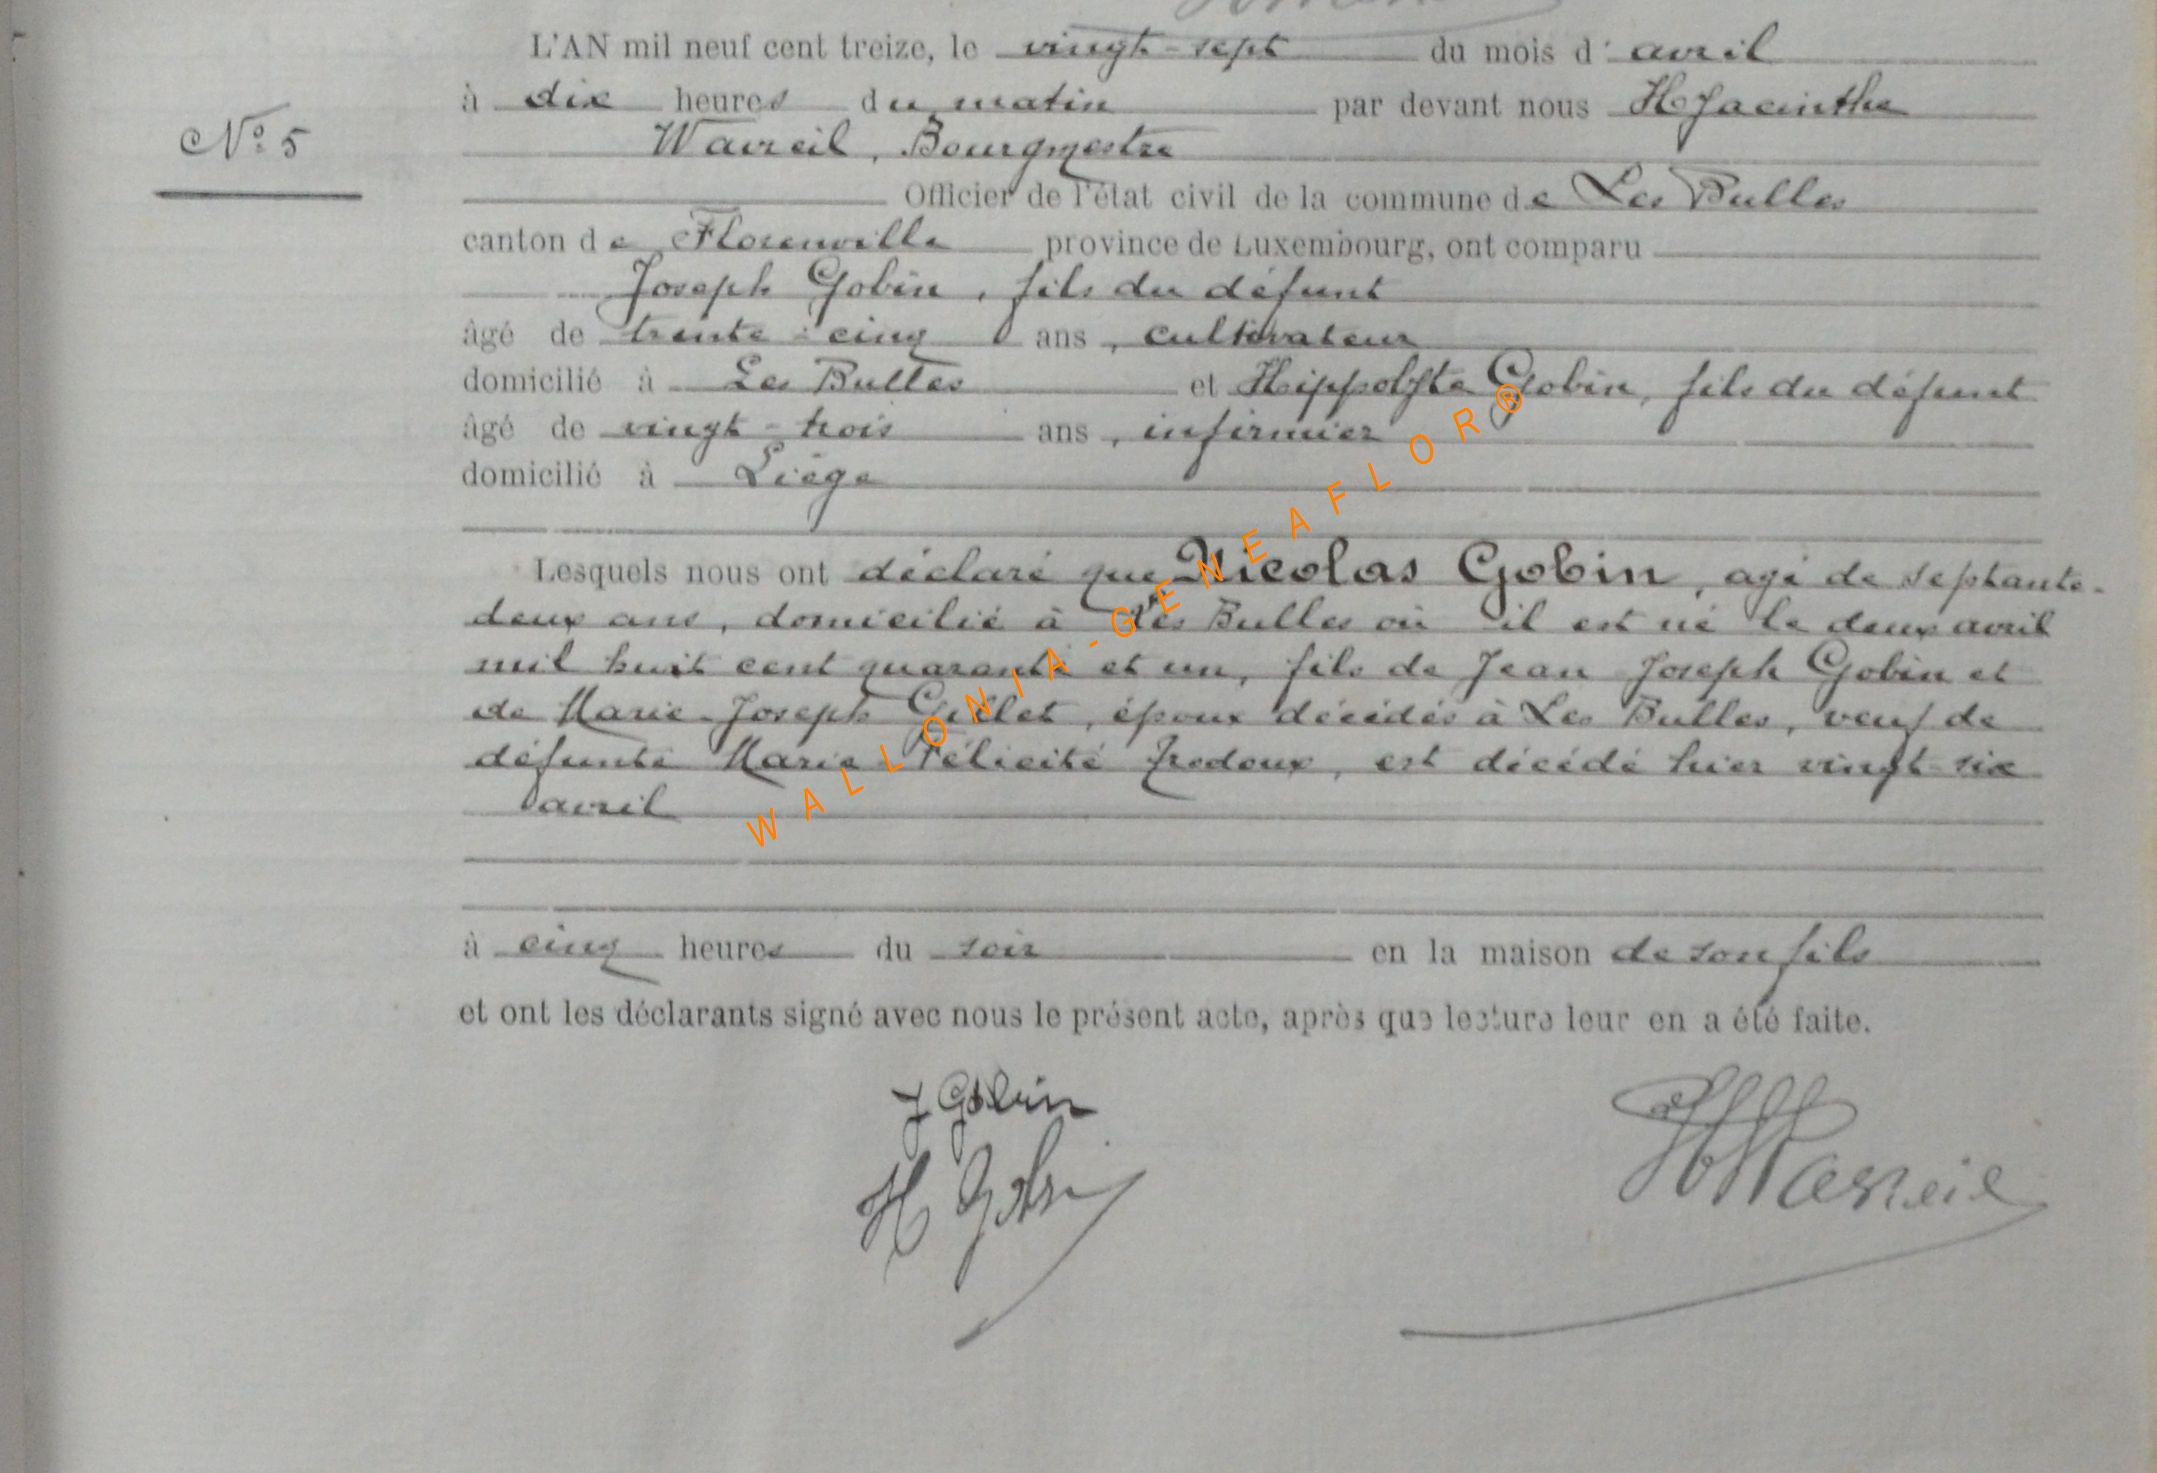 L'AN mil neuf cent treize, le vingt-sept du mois d' avril
à dix heures du matin par devant nous Hyacinthe
N° 5
Wavreil, Bourgmestre
Officier de l'état civil de la commune de Les Bulles
canton de Florenville province de Luxembourg, ont comparu
Joseph Gobin, fils du défunt
âgé de trente-cinq ans, cultivateur
domicilié à Les Bulles et Hippolyte Gobin, fils du défunt
âgé de vingt-trois ans, infirmier
domicilié à Liège
Lesquels nous ont déclaré que Nicolas Gobin, agé de septante-
deux ans, domicilié à Les Bulles où il est né le deux avril
mil huit cent quarante et un, fils de Jean Joseph Gobin et
de Marie-Joseph Gillet, époux décédés à Les Bulles, veuf de
défunte Marie Félicité Fredoux, est décédé hier vingt-six
avril
WALLONIA-GENEAFLOR®
à cinq heures du soir en la maison de son fils
et ont les déclarants signé avec nous le présent acte, après que lecture leur en a été faite.
J Gobin
H Gobin
H Wavreil